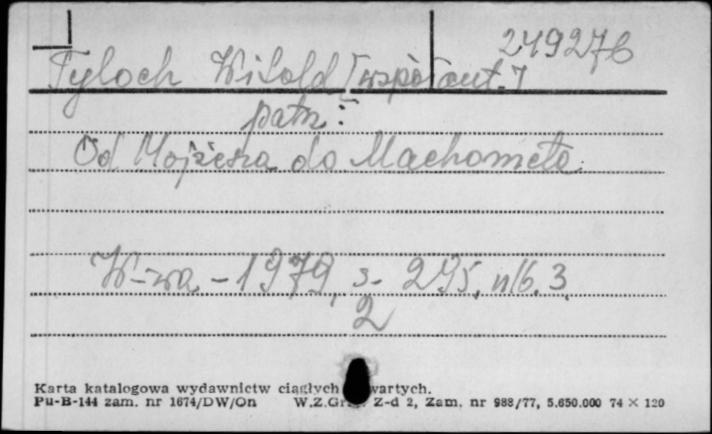 249276
Tyloch Witold [współaut.]
patrz:
Od Mojżesza do Machometa
W-wa - 1979, s. 295, nlb. 3
2
Karta katalogowa wydawnictw ciągłych wartych.
Pu-B-144 zam. nr 1674/DW/On W.Z.Gr Z-d 2, Zam. nr 988/77, 5.650.000 74 × 120